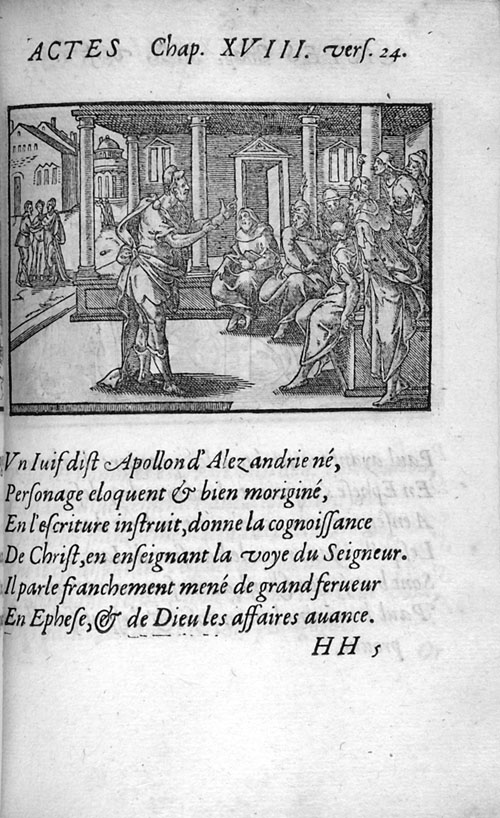 ACTES Chap. XVIII. verſ. 24.
Vn Iuif diſt Apollon d'Alexandrie né,
Perſonage eloquent & bien moriginé,
En l'eſcriture inſtruit, donne la cognoiſſance
De Chriſt, en enſeignant la voye du Seigneur.
Il parle franchement mené de grand ferueur
En Epheſe, & de Dieu les affaires auance.
HH 5